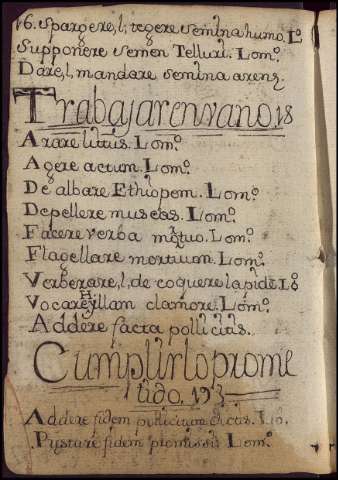 16. Spargere, l, tegere semina humo. Lo
Supponere semen Telluri. Lomº.
Dare, l, mandare semina arenę.
Trabajar en vano, 18
Arare littus. Lomº.
Agere actum. Lomº.
De albare Ethiopem. Lomº.
Depellere muscas. Lomº.
Facere verba mortuo. Lomº.
Flagellare mortuum. Lomº.
Verberare, l, de coquere lapidē Lº
Vocare Hyllam clamore. Lomº.
Addere facta pollicitis.
Cumplir lo prome
tido. 19
Addere fidem dictis. Lo.
fidem promissis Lomº.